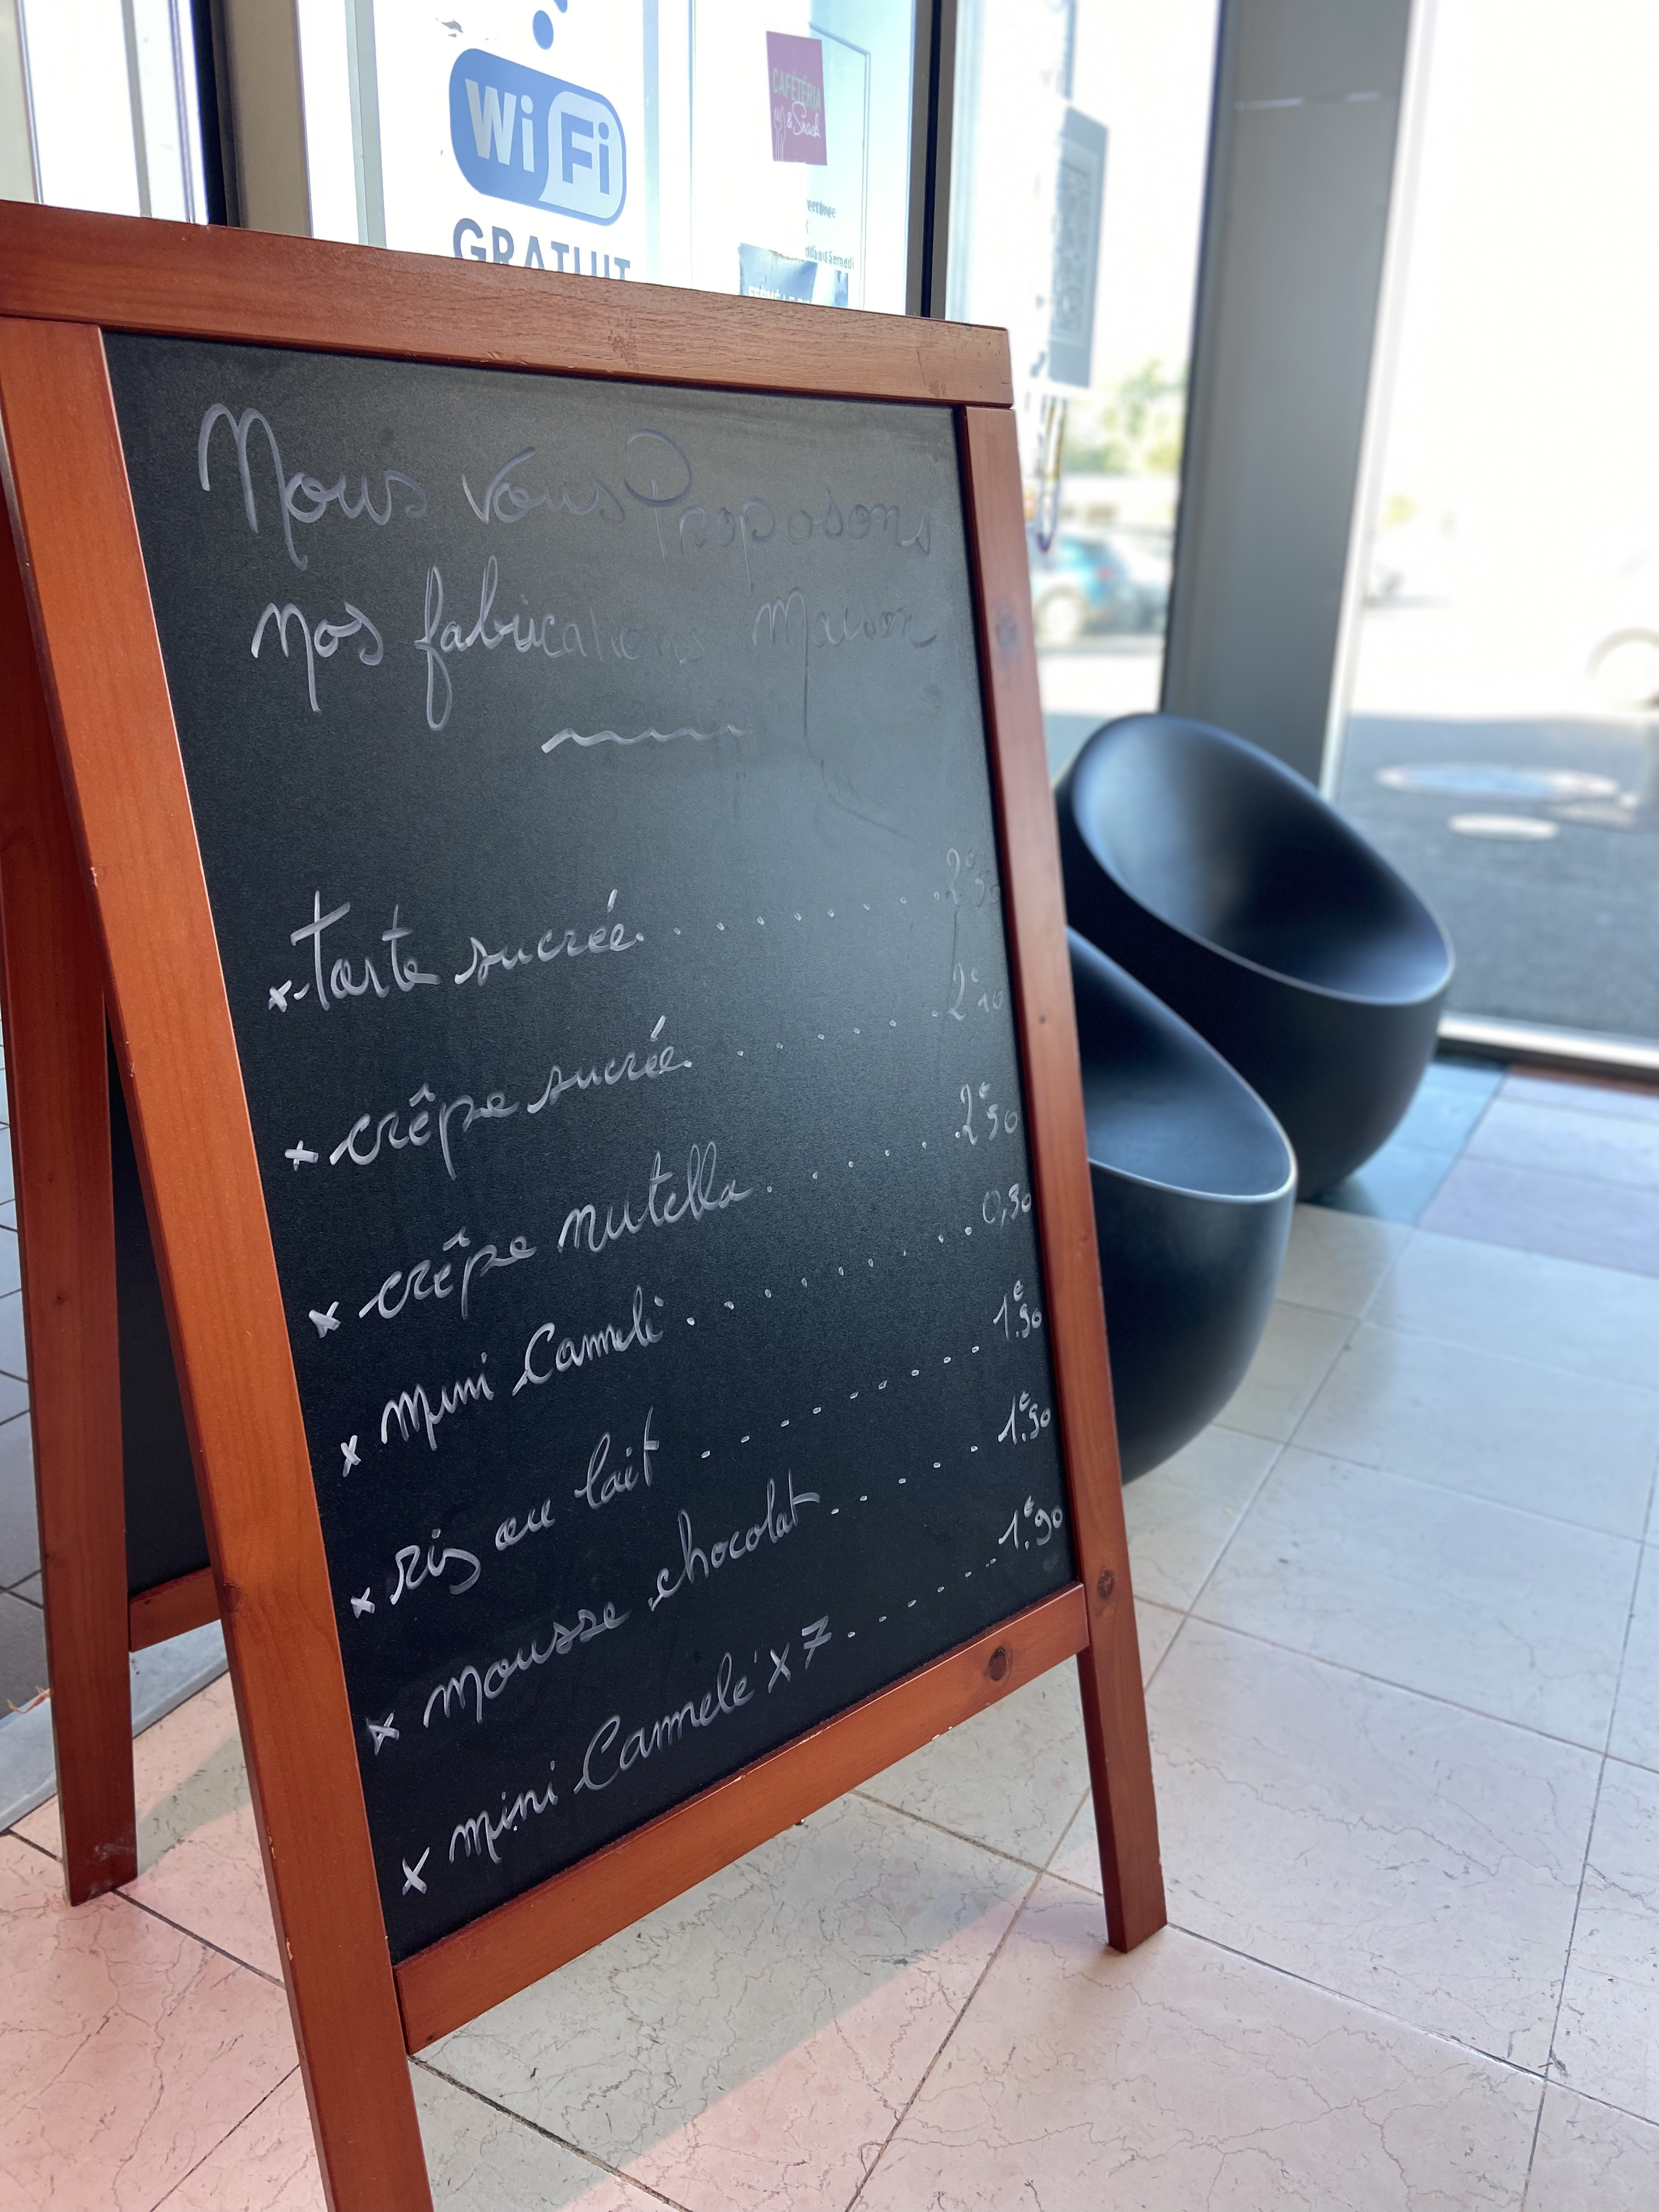 WiFi
GRATUIT
CAFÉTÉRIA
& Snack
Nous vous Proposons
nos fabrications Maison
x Tarte sucrée . . . . . . . . 2€50
x crêpe sucrée . . . . . . . 2€10
x crêpe nutella . . . . . . 2€50
x mini Canneli . . . . . . . . 0,30
x riz au lait . . . . . . . . . 1€90
x mousse chocolat . . . . . 1€90
x mini Cannelé x 7 . . . . . . 1€90